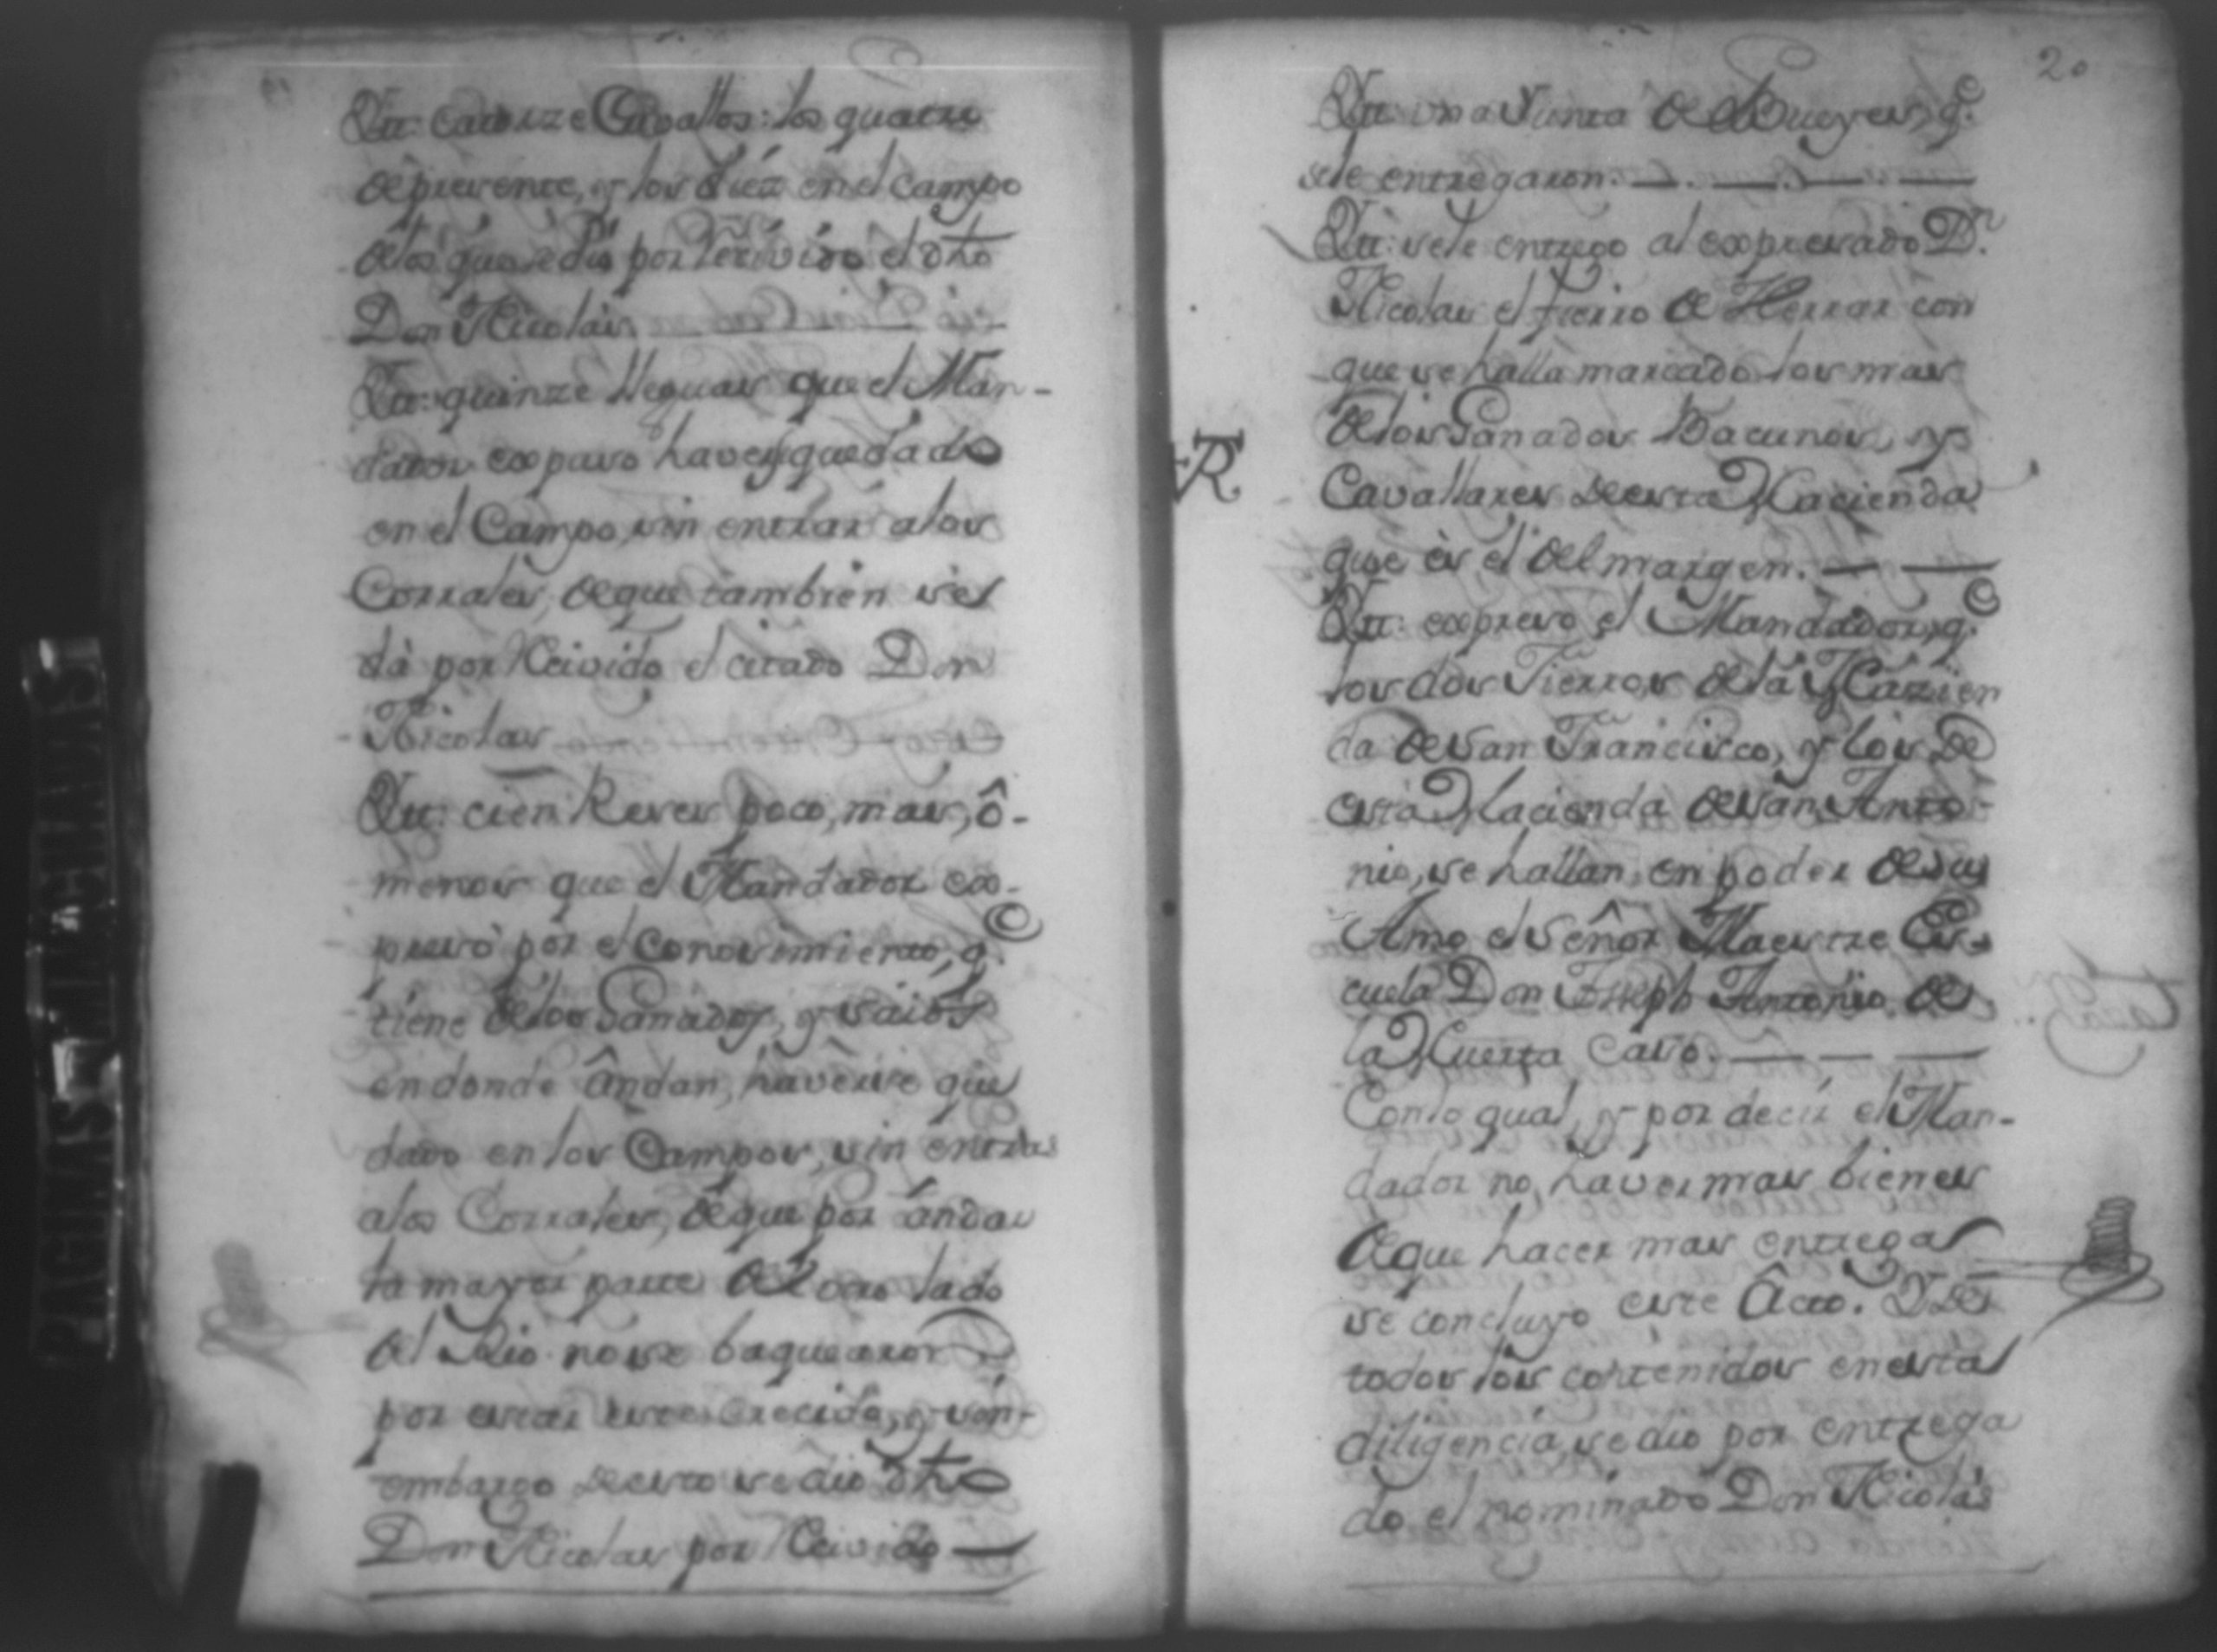 Ytt: catorze Cavallos: los quatro
de presente, y los diéz en el campo
de los que se dio por recivido el dho
Don Nicolas
Ytt: quinze Yeguas que el Man-
dador expuso haver quedado
en el Campo sin entrar a los
Corrales, de que tambien se
dà por Reivido el citado Don
Nicolas
Ytt: cien Reses poco, mas, ô
menos que el Mandador ex-
pusò por el Conosimiento, q.e
tiene de los Ganados, y
en donde ândan, haverse que
dado en los Campos, sin entrar
a los Corrales, de que por ândar
la mayor parte del otro lado
del Rio no se baquearon
por estar este crecido, y sin
embargo de esto se dio dho
Don Nicolas por Reivido
20
Ytt: una Yunta de Bueyes, q.e
se le entregaron.
Ytt: se le entrego al expresado D.n
Nicolas el fierro de Herrar con
que se halla marcado los mas
de los Ganados Bacunos, y
Cavallares de esta Hacienda
que es el del margen.
R
Ytt: expreso el Mandador, q.e
los dos Fierros de la Hazien
da de San Francisco, y los de
esta Hacienda de San Anto-
nio, se hallan en poder de su
Amo el Señor Maestre Es-
cuela Don Joseph Antonio de
la Huerta Caso.
Con lo qual, y por decir el Man-
dador no haver mas bienes
de que hacer mas entrega
se concluyo este Âcto. Y de
todos los contenidos en esta
diligencia, se dio por entrega
do el nominado Don Nicolás
PAGINAS